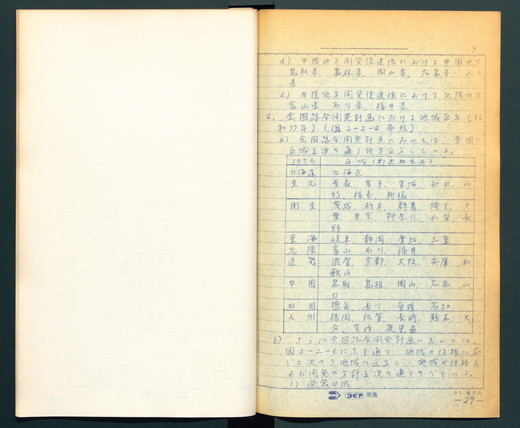 d) 中国地方開発促進法における中国地方
鳥取県、島根県、岡山県、広島県、山口
県
e) 北陸地方開発促進法における北陸地方
富山県 石川県、福井県
全国総合開発計画における地域区分
和37年) (図2-2-2 参照)
a) 全国総合開発計画においては、全国
区域を次の通り地方区分としている。
北海道 北海道
東北 青森、岩手、宮城、秋田、山
形、福島、新潟
関東 茨城、栃木、群馬、埼玉、千
葉、東京、神奈川、山梨、長
野
東海 岐阜、静岡、愛知、三重
北陸 富山、石川、福井
近畿 滋賀、京都、大阪、兵庫、和
歌山
中国 鳥取、島根、岡山、広島、山
口
四国 徳島、香川、愛媛、高知
九州 福岡、佐賀、長崎、熊本、大
分、宮崎、鹿児島
b) さらに全国総合開発計画においては、
図2-2-2に示す通り、地域の性格に応
じた次の3地域に区分し、地域の性格に
開発の方針を次の通りのべている。
1) 過密地域
—29—